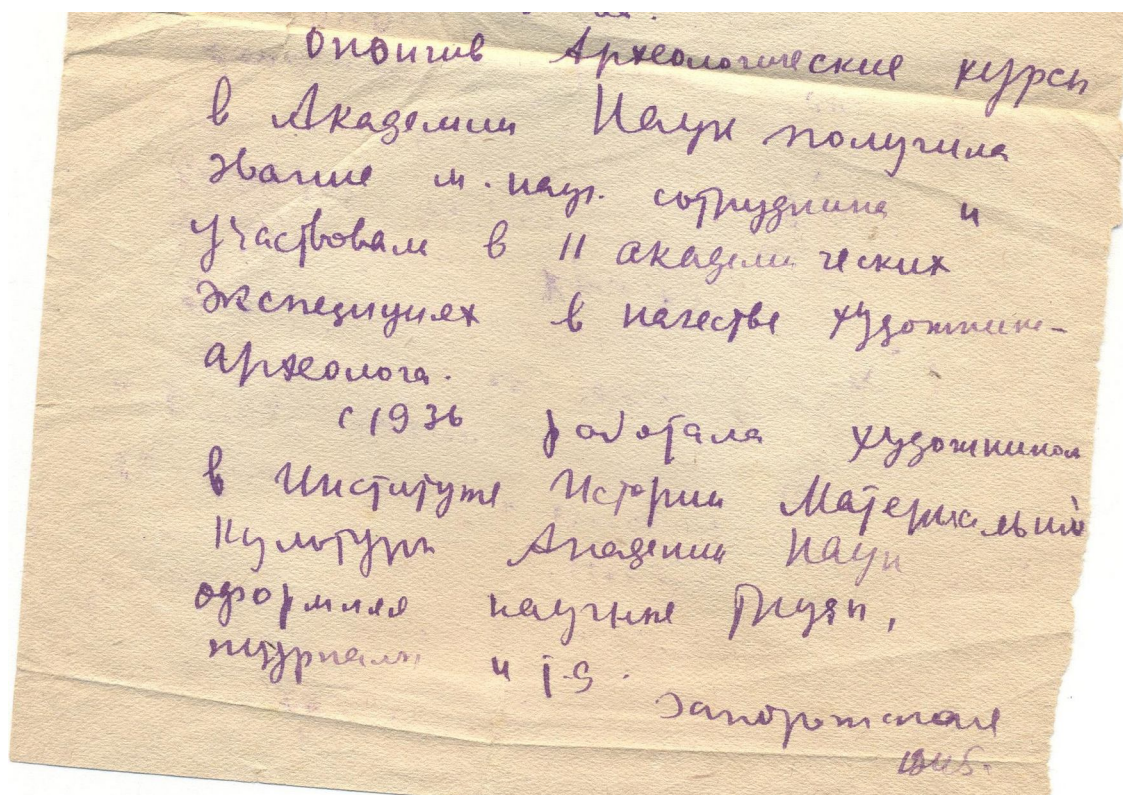 Окончив Археологические курсы
в Академии Наук получила
звание м. науч. сотрудника и
участвовала в 11 академических
экспедициях в качестве художника-
археолога.
С 1936 работала художником
в Институте Истории Материальной
Культуры Академии Наук
оформляя научные труды,
журналы и т.д.
Запорожская